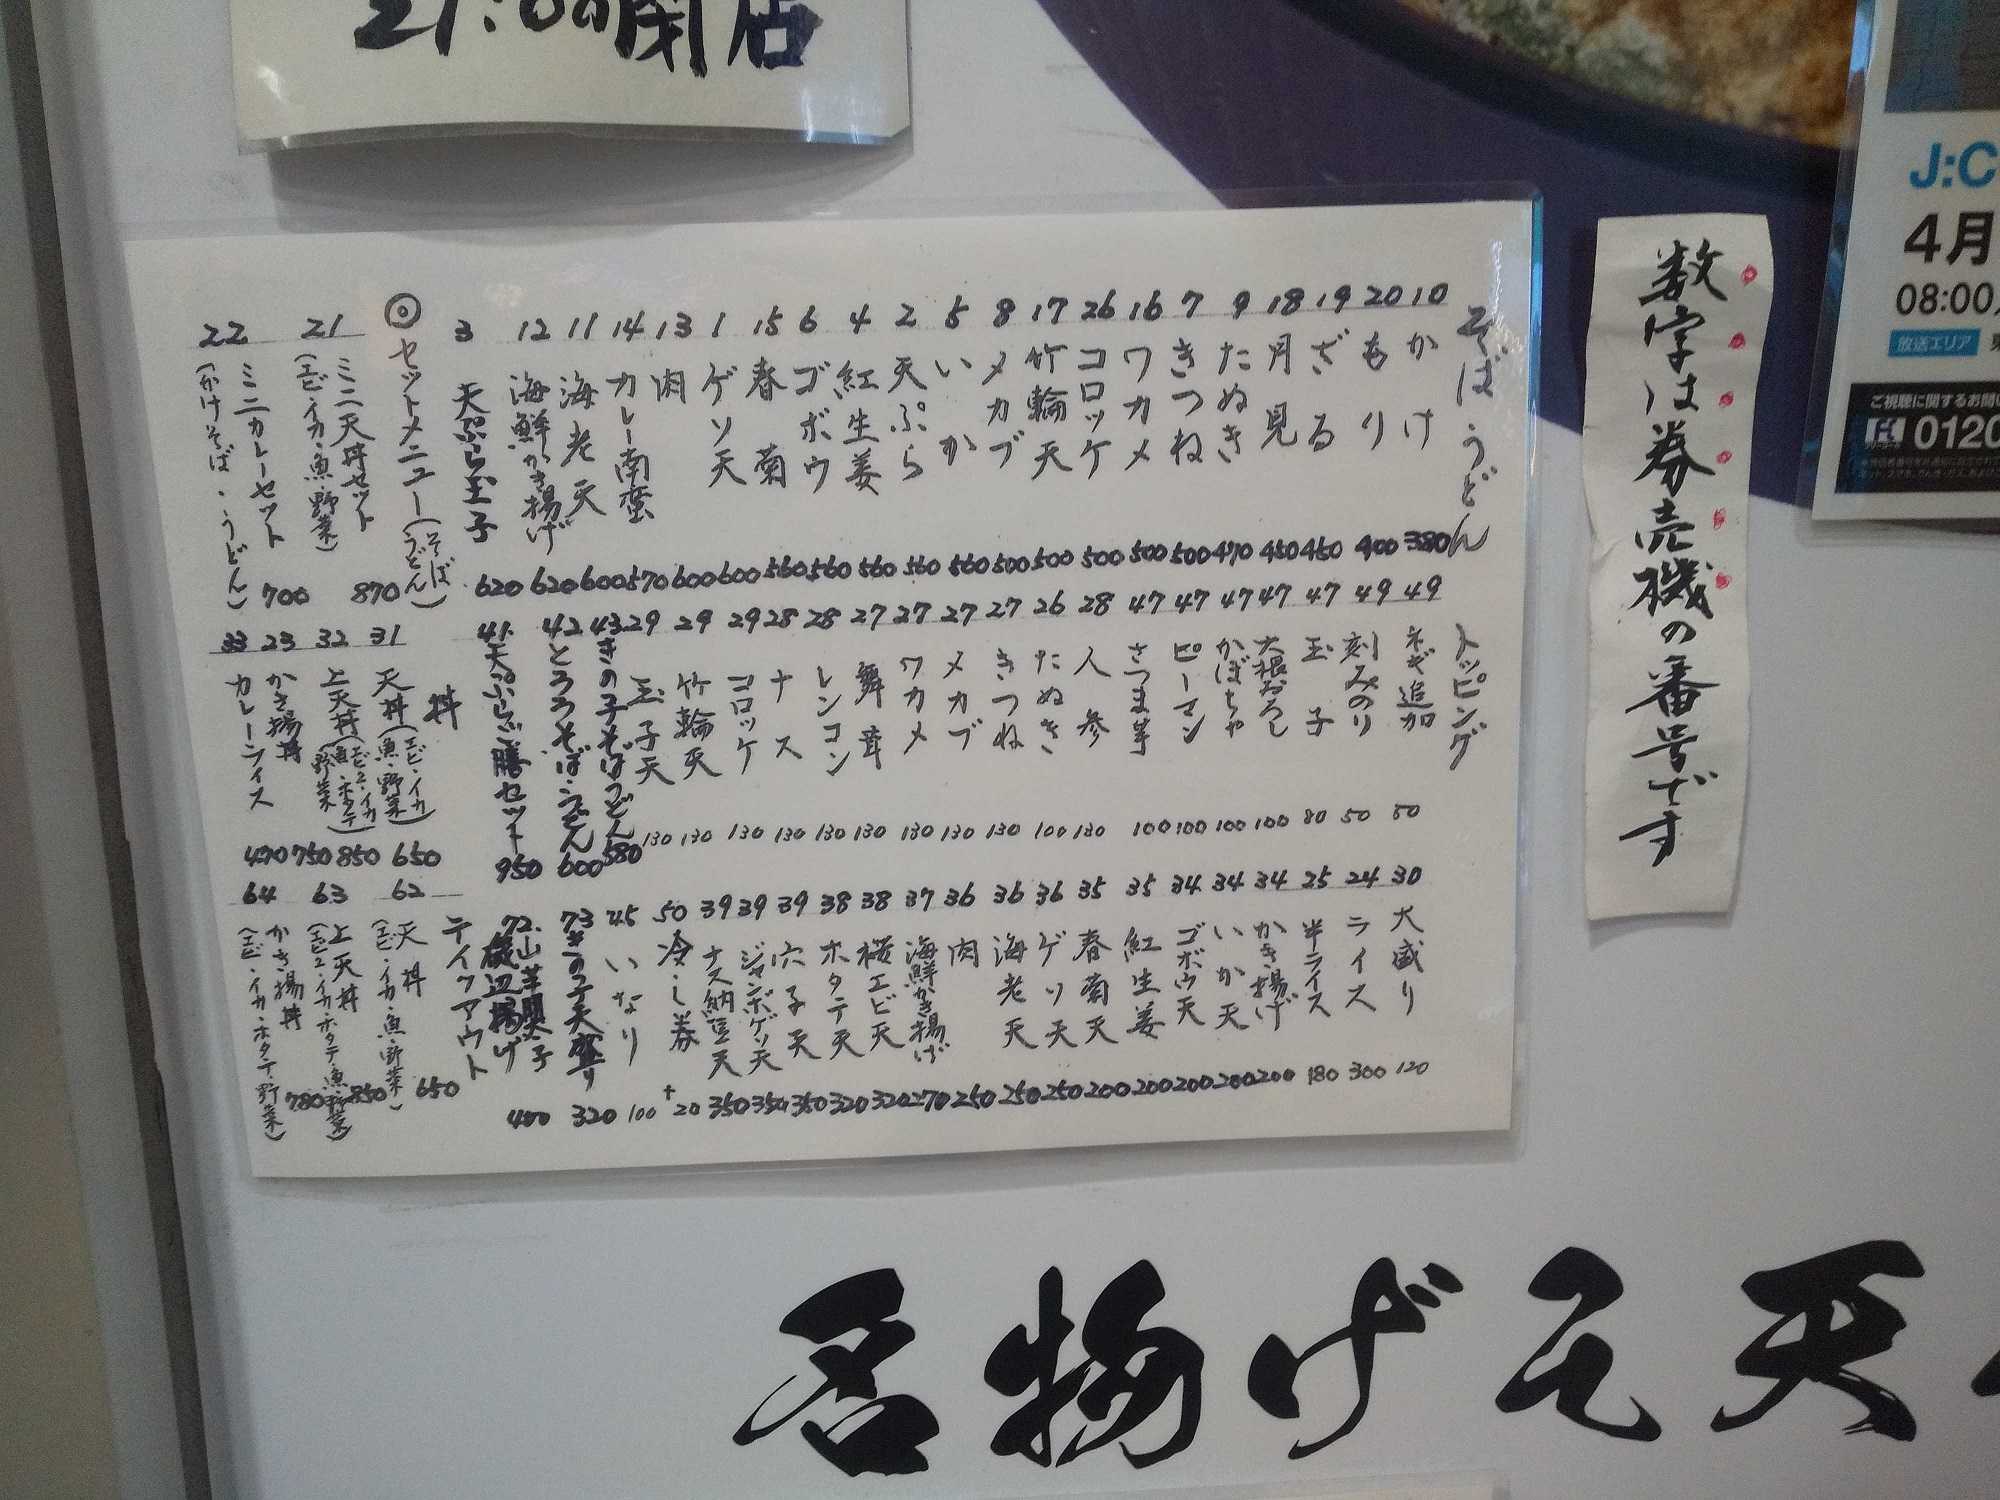 21:00閉店
そばうどん
10 かけ 380
20 もり 400
19 ざる 450
18 月見 450
9 たぬき 470
7 きつね 500
16 ワカメ 500
26 コロッケ 500
17 竹輪天 500
8 メカブ 500
5 いか 560
2 天ぷら 560
4 紅生姜 560
6 ゴボウ 560
15 春菊 560
1 ゲソ天 600
13 肉 600
14 カレー南蛮 570
11 海老天 600
12 海鮮かき揚げ 620
3 天ぷら玉子 620
◎セットメニュー(そば うどん)
21 ミニ天丼セット 870
(エビ・イカ・魚・野菜)
22 ミニカレーセット 700
(かけそば・うどん)
トッピング
49 ネギ追加 50
49 刻みのり 50
47 玉子 80
47 大根おろし 100
47 かぼちゃ 100
47 ピーマン 100
47 さつま芋 100
28 人参 130
26 たぬき 100
27 きつね 130
27 メカブ 130
27 ワカメ 130
27 舞茸 130
28 レンコン 130
28 ナス 130
29 コロッケ 130
29 竹輪天 130
29 玉子天 130
43 きの子そばうどん 580
42 とろろそば・うどん 600
41 天ぷらご膳セット 950
丼
31 天丼(エビ・イカ 魚・野菜) 650
32 上天丼(エビ2・イカ 魚・ホタテ 野菜) 850
23 かき揚丼 750
33 カレーライス 470
30 大盛り 120
24 ライス 300
25 半ライス 180
34 かき揚げ 200
34 いか天 200
34 ゴボウ天 200
35 紅生姜 200
35 春菊天 200
36 ゲソ天 250
36 海老天 250
36 肉 250
37 海鮮かき揚げ 270
38 桜エビ天 320
38 ホタテ天 320
39 穴子天 350
39 ジャンボゲソ天 350
39 ナス納豆天 350
50 冷し券 +20
45 いなり 100
73 きの子天盛り 320
72 山芋
磯辺揚げ 400
テイクアウト
62 天丼 650
(エビ・イカ・魚・野菜)
63 上天丼 850
(エビ2・イカ・ホタテ・魚・野菜)
64 かき揚丼 780
(エビ・イカ・ホタテ・野菜)
数字は券売機の番号です
J:C
4月
08:00
放送エリア
ご視聴に関するお問い
0120
名物げそ天